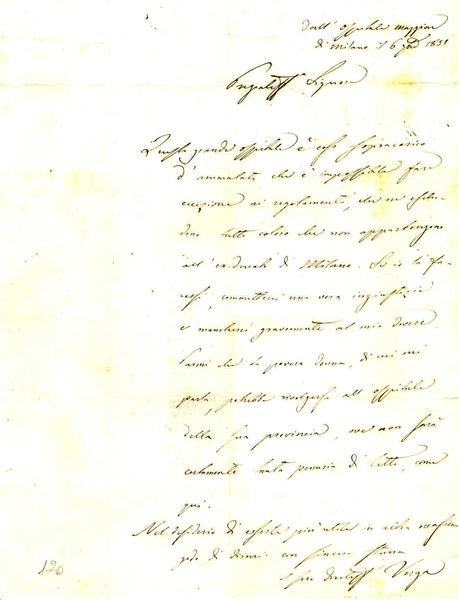 Dall'Ospitale maggiore
di Milano il 6 1851
Pregiatiss Signore
Questo grande ospitale è così sopracarico
d'ammalati, che è impossibile fare
eccezione ai regolamenti, che ne esclu-
dono tutti coloro che non appartengono
all' ex-ducato di Milano. Se io la fa-
cessi, commetterei una vera ingiustizia
e mancherei gravemente al mio dovere.
Parmi che la povera donna, di cui mi
parla, potrebbe rivolgersi all' ospitale
della sua provincia, ove non sarà
certamente tanta penuria di letti, come
qui.
Nel desiderio di esserle più utile in altra occasione
godo di dirmi con sincera stima
Verga
120